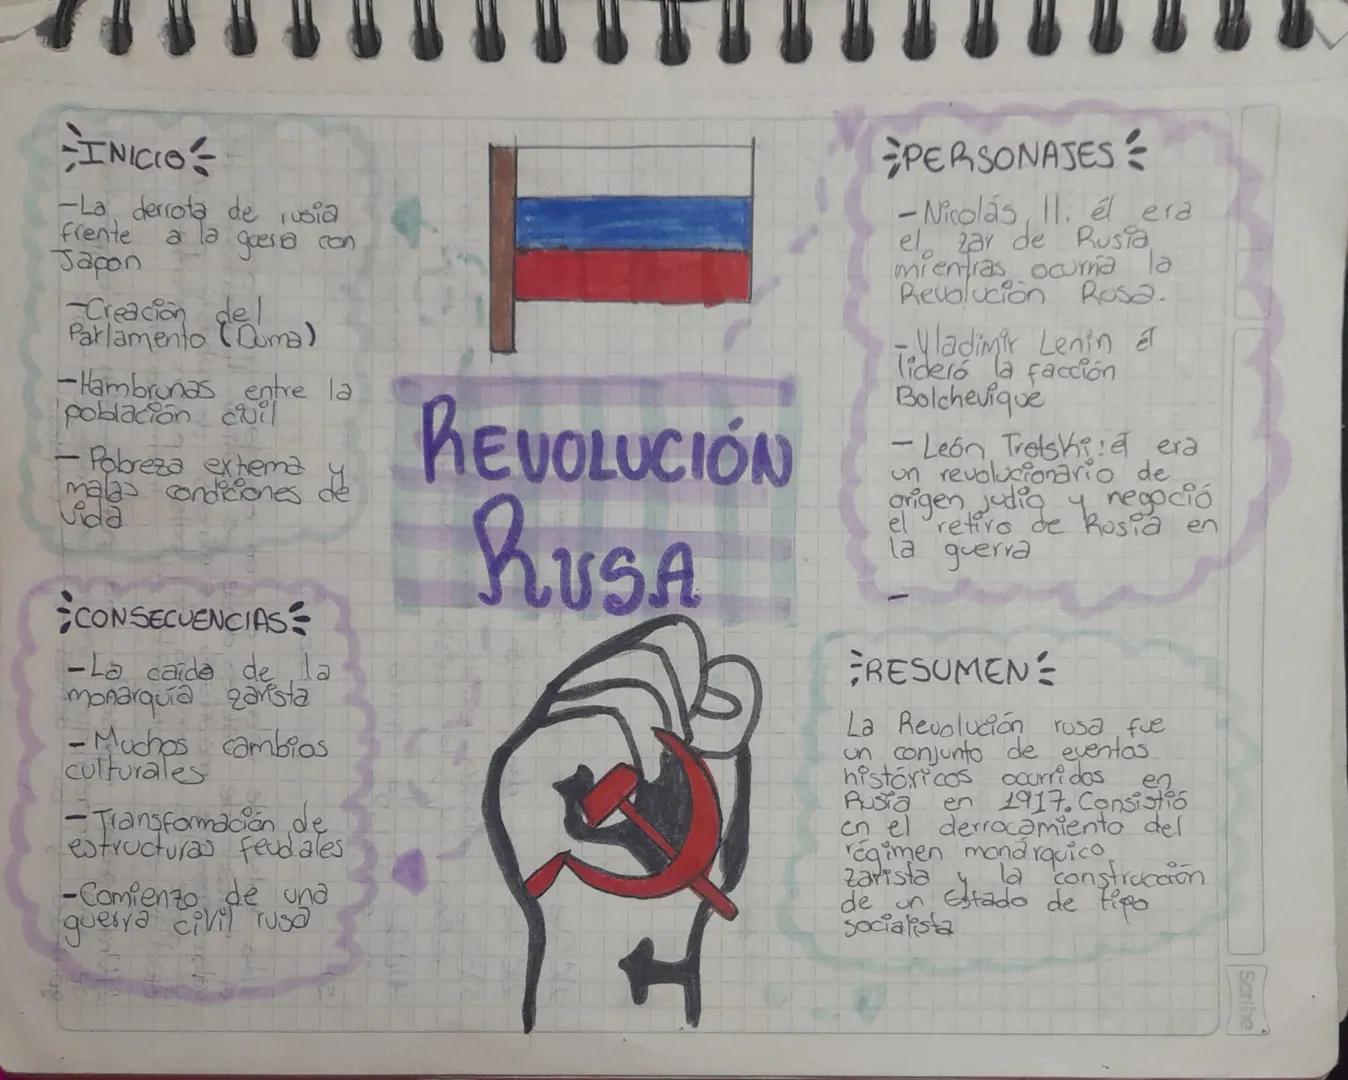 INICIO
-La derrota de rusia
frente a la guerra con
Japon
-Creación del
Parlamento (Duma)
-Hambrunas entre la
población civil
- Pobreza extrema y
malas condiciones de
vida
CONSECUENCIAS
-La caída de la
monarquía zarista
- Muchos cambios
culturales
- Transformación de
estructuras feudales
-Comienzo de una
guerra civil rusa
REVOLUCIÓN
RUSA
PERSONAJES
- Nicolás II. él era
el zar de Rusia
mientras ocurría la
Revolución Rusa.
- Vladimir Lenin él
lideró la facción
Bolchevique
- León Trotski: él era
un revolucionario de
origen judio y negoció
el retiro de Rusia en
la guerra
-
RESUMEN
La Revolución rusa fue
un conjunto de eventos
históricos ocurridos en
Rusia en 1917. Consistió
en el derrocamiento del
régimen monárquico
zarista y la construcción
de un Estado de tipo
socialista
Scribe